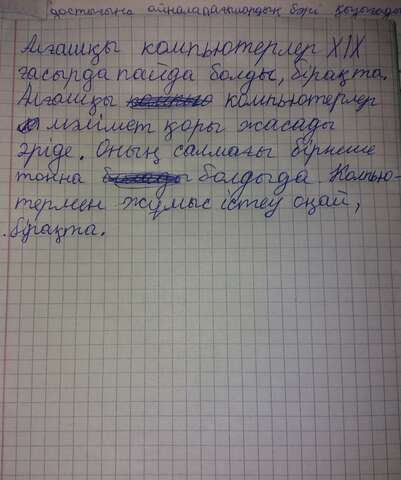 достығына айналадағылордың бәрі қызығады
Алғашқы компьютерлер XIX
ғасырда пайда болды, бірақта.
Алғашқы компьютерлер
мәлімет қоры жасады
әріде. Оның салмағы бірнеше
тонна болдыда Компью-
термен жұмыс істеу оңай,
бірақта.